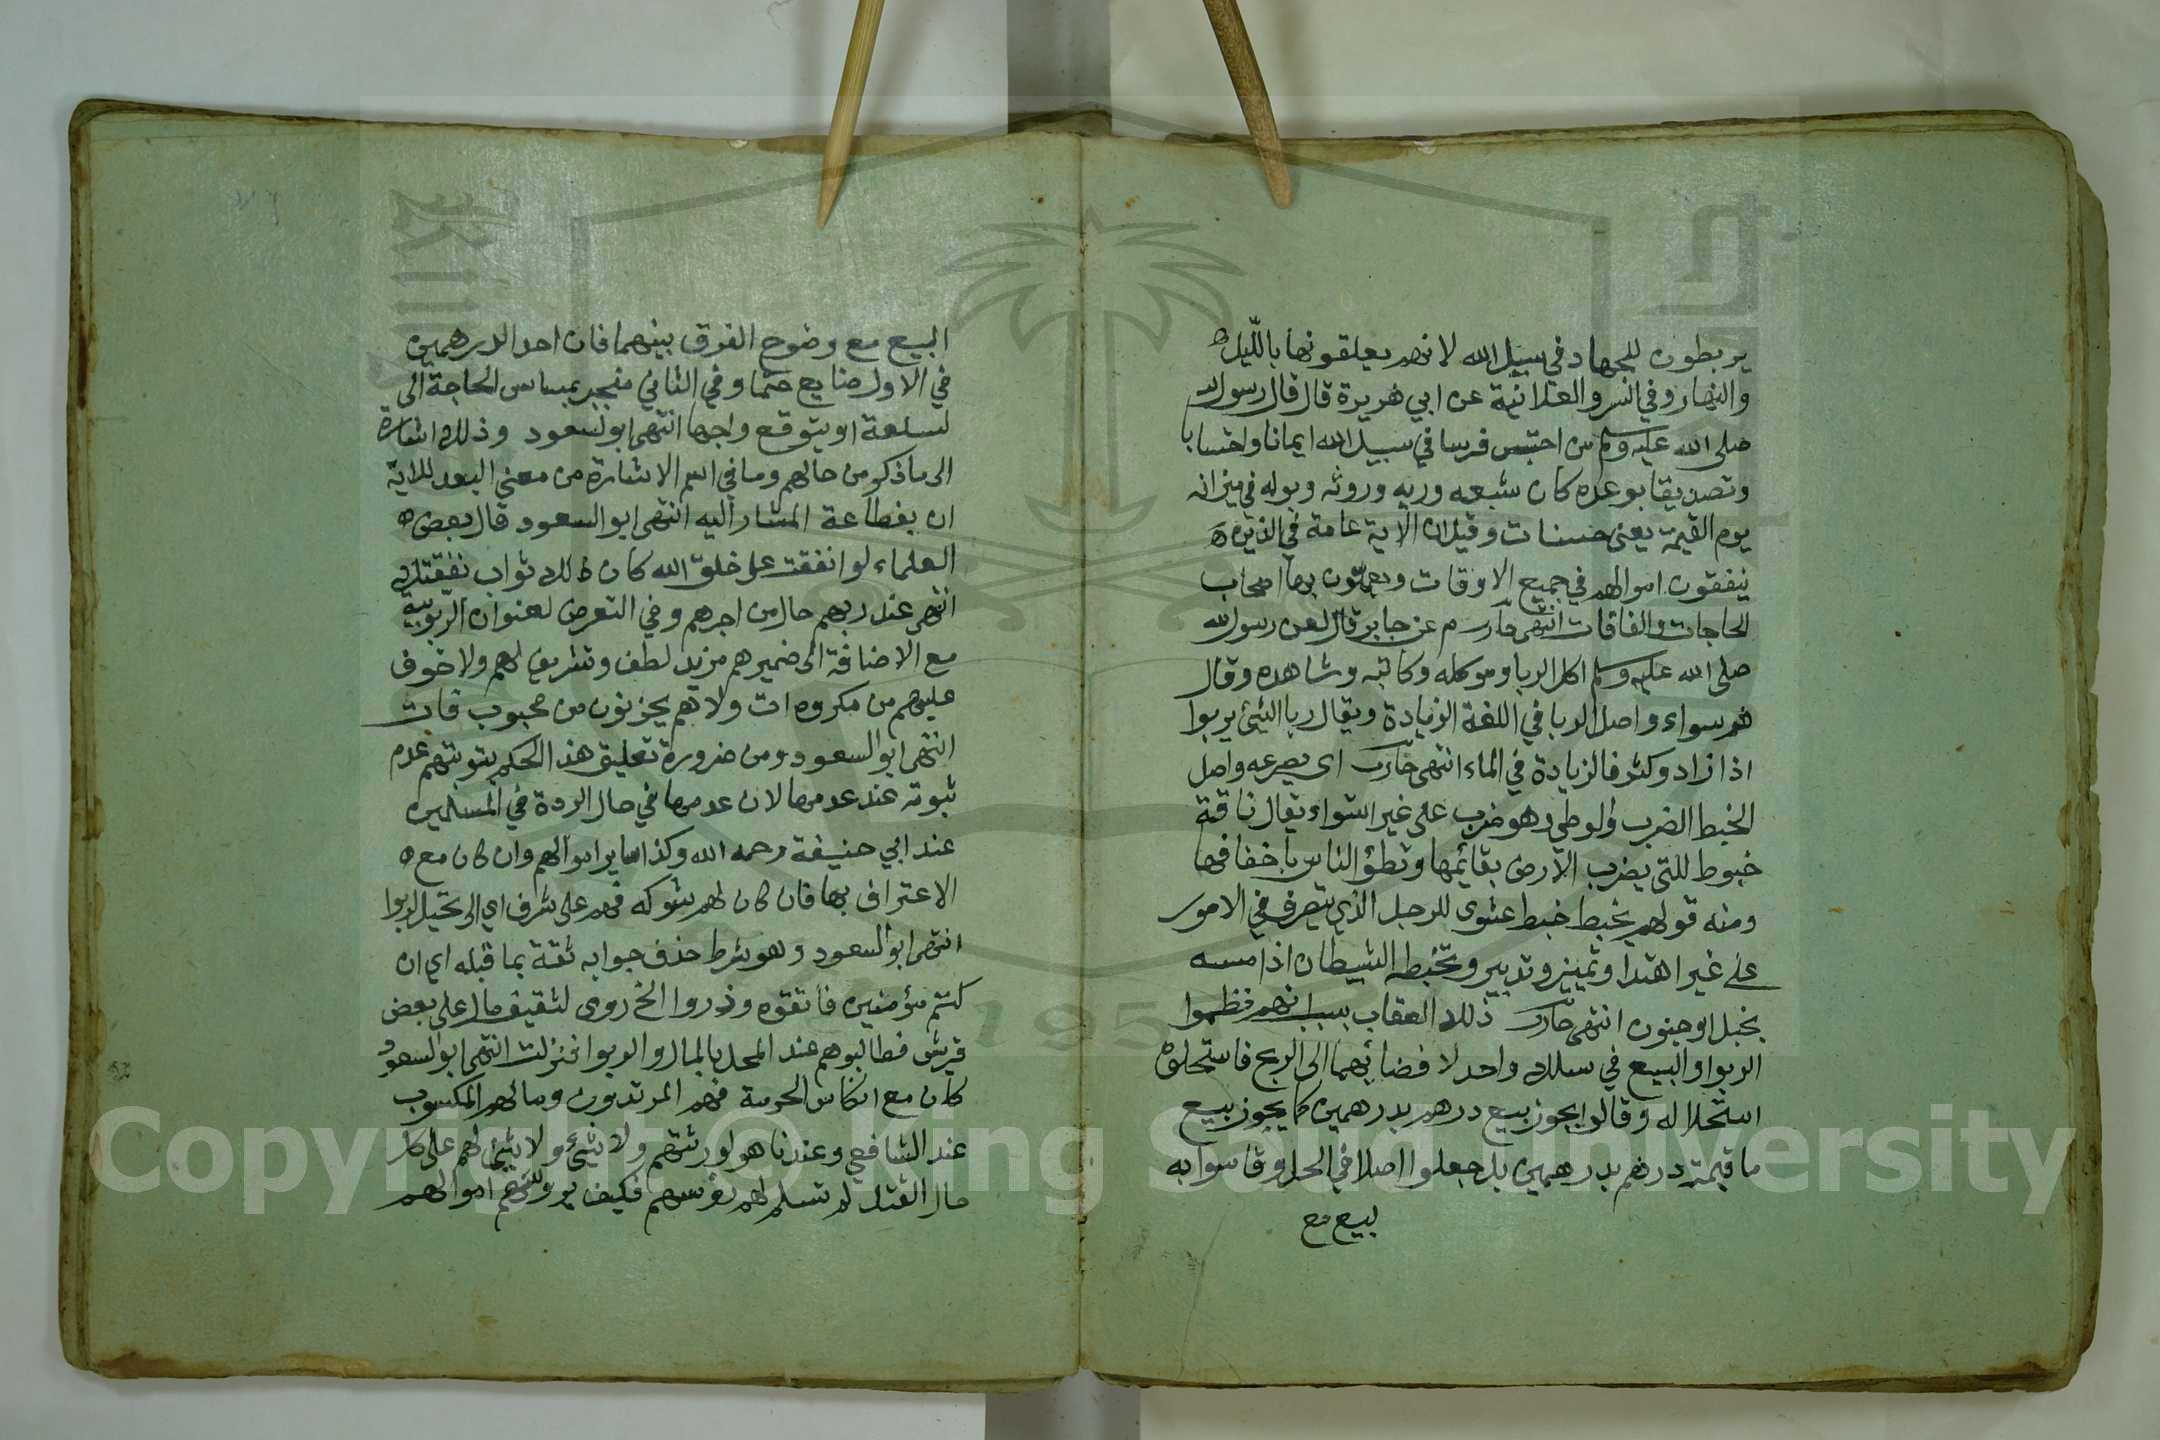 يربطون للجهاد في سبيل الله لانهم يعلقونها بالليل
والنهار وفي السر والعلانية عن ابي هريرة قال قال رسول الله
صلى الله عليه وسلم من احتبس فرسا في سبيل الله ايمانا واحتسابا
وتصديقا بوعده كان شبعه وريه وروثه وبوله في ميزانه
يوم القيمة يعني حسنات وقيل ان الآية عامة في الذين
ينفقون اموالهم في جميع الاوقات ويعمون بها اصحاب
الحاجات والفاقات انتهى خازن م عن جابر قال لعن رسول الله
صلى الله عليه وسلم اكل الربا وموكله وكاتبه وشاهده وقال
هم سواء واصل الربا في اللغة الزيادة ويقال ربا الشيئ يربوا
اذا زاد وكثر فالزيادة في الماء انتهى خازن اى يصرعه واصل
الخبط الضرب والوطي وهو ضرب على غير استواء يقال ناقة
خبوط للتي يضرب الارض بقائمها وتطؤ الناس باخفافها
ومنه قولهم يخبط خبط عشوى للرجل الذي يتصرف في الامور
على غير اهتدا وتمييز وتدبير وتخبطه الشيطان اذا مسه
بخبل او جنون انتهى خازن ذلك العقاب بسبب انهم نظموا
الربوا والبيع في سلك واحد لافضائهما الى الربح فاستحلوه
استحلاله وقالوا يجوز بيع درهم بدرهمين كما يجوز بيع
ما قيمته درهم بدرهمين بل جعلوا اصلا في الحل وقاسوا به
لبيع مع
البيع مع وضوح الفرق بينهما فان احد الدرهمين
في الاول ضايع حتما وفي الثاني منجبر بمساس الحاجة الى
لسلعة او يتوقع واجها انتهى ابو لسعود وذلك اشارة
الى ماذكر من حالهم وما في اسم الاشارة من معنى البعد للاية
ان بفظاعة المشار أليه انتهى ابو السعود قال بعض
العلماء لو انفقت على خلق الله كان ذلك ثواب نفقتك
انتهى عند ربهم حال من اجرهم وفي التعرض لعنوان الربوبية
مع الاضافة الى ضميرهم مزيد لطف وتشريف لهم ولا خوف
عليهم من مكروه ات ولاهم يحزنون من محبوب فات
انتهى ابو السعود ومن ضرورة تعليق هذا الحكم بتوبتهم عدم
ثبوته عند عدمها لان عدمها في حال الردة في المسلمين
عند ابي حنيفة رحمه الله وكذا ساير اموالهم وان كان مع
الاعتراف بها فان كان لهم شوكه فهم على شرف اي الى تخيل الربوا
انتهى ابو السعود وهو شرط حذف جوابه ثقة بما قبله اي ان
كنتم مؤمنين فاتقوه وذروا الخ روى لثقيف مال على بعض
قريش فطالبوهم عند المحل بالمال والربوا فنزلت انتهى ابو السعود
كان مع انكاس الحرمة فهم المرتدون ومالهم المكسوب
عند الشافعي وعندنا هو لورثتهم ولا شيئ ولا شيئ لهم على كل
حال القتل لم تسلم لهم نفوسهم فكيف يرون لهم اموالهم